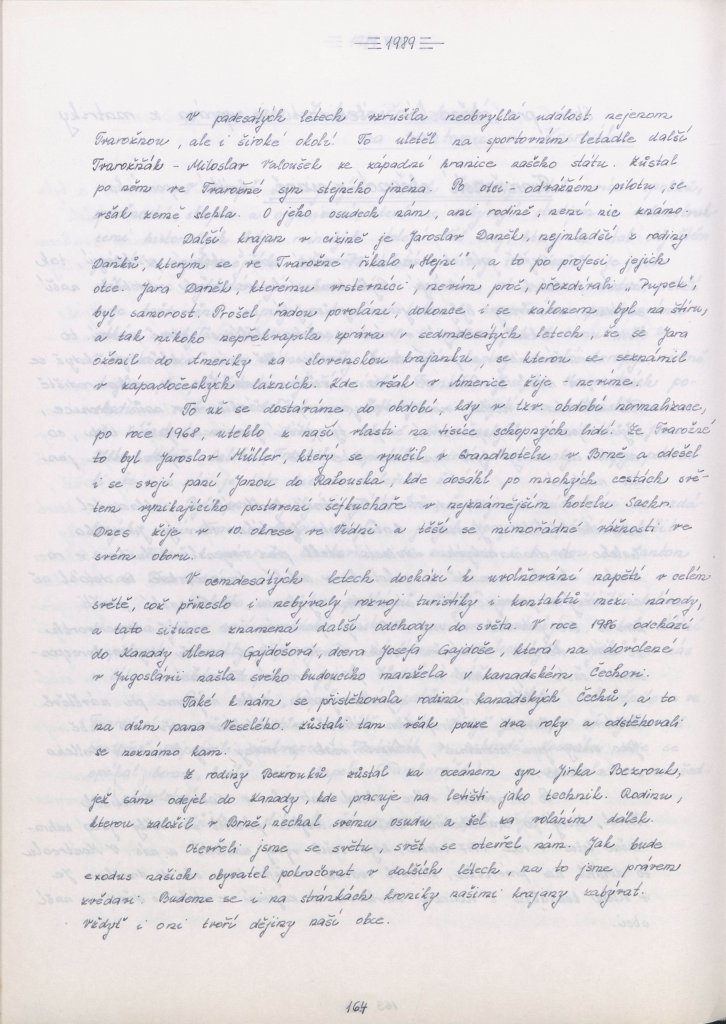 1989
V padesátých letech vzrušila neobvyklá událost nejenom
Tvarožnou, ale i široké okolí. To uletěl na sportovním letadle další
Tvarožňák - Miloslav Valoušek ze západní hranice našeho státu. Zůstal
po něm ve Tvarožné syn stejného jména. Po otci - odvážném pilotu, se
však země slehla. O jeho osudech nám, ani rodině, není nic známo.
Další krajan v cizině je Jaroslav Daněk, nejmladší z rodiny
Daňků, kterým se ve Tvarožné říkalo „Hejni", a to po profesi jejich
otce. Jara Daněk, kterému vrstevníci, nevím proč, přezdívali „Pupek",
byl samorost. Prošel řadou povolání, dokonce i se zákonem byl na štíru,
a tak nikoho nepřekvapila zpráva v sedmdesátých letech, že se Jara
oženil do Ameriky za slovenskou krajanku, se kterou se seznámil
v západočeských lázních. Kde však v Americe žije - nevíme.
To už se dostáváme do období, kdy v tzv. období normalizace,
po roce 1968, uteklo z naší vlasti na tisíce schopných lidí. Ze Tvarožné
to byl Jaroslav Müller, který se vyučil v Grandhotelu v Brně a odešel
i se svojí paní Janou do Rakouska, kde dosáhl po mnohých cestách svě-
tem vynikajícího postavení šéfkuchaře v nejznámějším hotelu Sacher.
Dnes žije v 10. okrese ve Vídni a těší se mimořádné vážnosti ve
svém oboru.
V osmdesátých letech dochází k uvolňování napětí v celém
světě, což přineslo i nebývalý rozvoj turistiky i kontaktů mezi národy,
a tato situace znamená další odchody do světa. V roce 1986 odchází
do Kanady Alena Gajdošová, dcera Josefa Gajdoše, která na dovolené
v Jugoslávii našla svého budoucího manžela v kanadském Čechovi.
Také k nám se přistěhovala rodina kanadských Čechů, a to
na dům pana Veselého. Zůstali tam však pouze dva roky a odstěhovali
se neznámo kam.
Z rodiny Bezrouků zůstal za oceánem syn Jirka Bezrouk,
jež sám odejel do Kanady, kde pracuje na letišti jako technik. Rodinu,
kterou založil v Brně, nechal svému osudu a šel za voláním dálek.
Otevřeli jsme se světu, svět se otevřel nám. Jak bude
exodus našich obyvatel pokračovat v dalších létech, na to jsme právem
zvědavi. Budeme se i na stránkách kroniky našimi krajany zabývat.
Vždyť i oni tvoří dějiny naší obce.
164